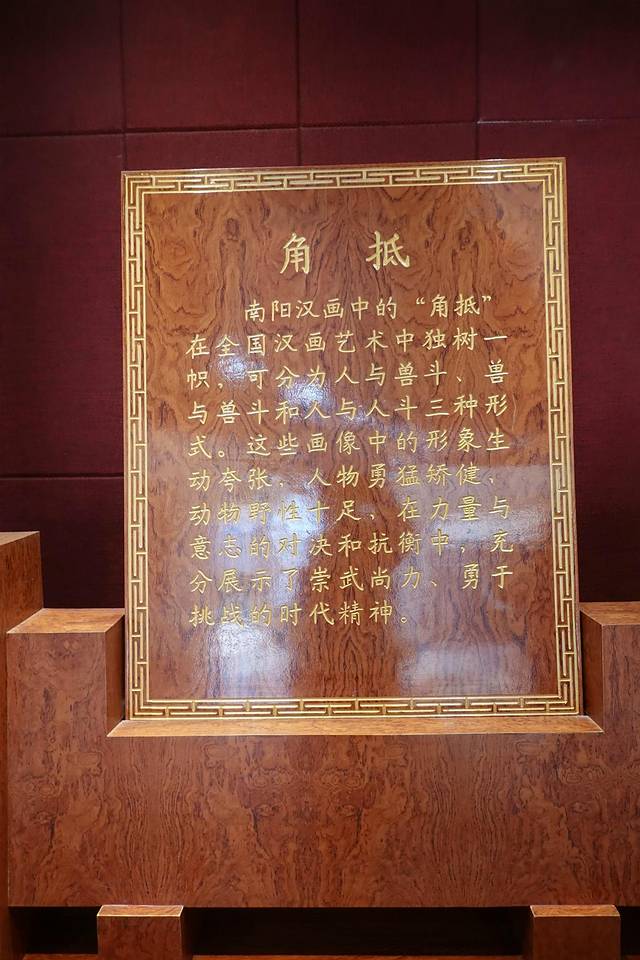 角抵
南阳汉画中的“角抵”
在全国汉画艺术中独树一
帜，可分为人与兽斗、兽
与兽斗和人与人斗三种形
式。这些画像中的形象生
动夸张，人物勇猛矫健，
动物野性十足，在力量与
意志的对决和抗衡中，充
分展示了崇武尚力、勇于
挑战的时代精神。